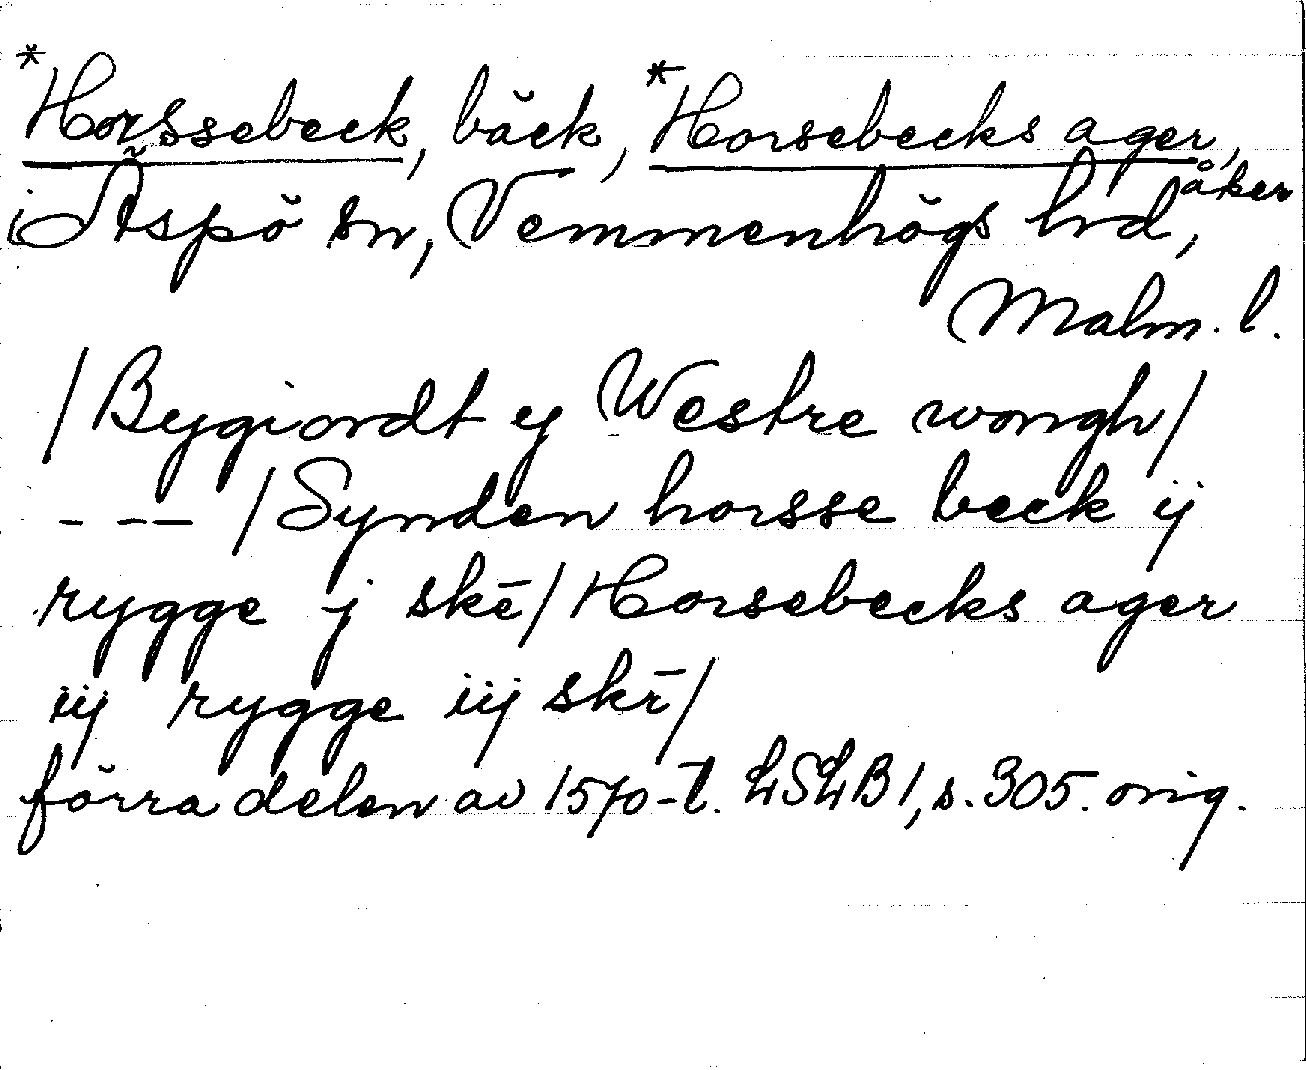 *Horssebeck, bäck, *Horsebecks ager, åker
i Äspö sn, Vemmenhögs hd,
Malm. l.
/Bygiordt ij Westre wongh/
- -- /Synden horsse beck ij
rygge j skē/Horsebecks ager
iij rygge iij skē/
förra delen av 1570-t. LSLB 1, s. 305. orig.